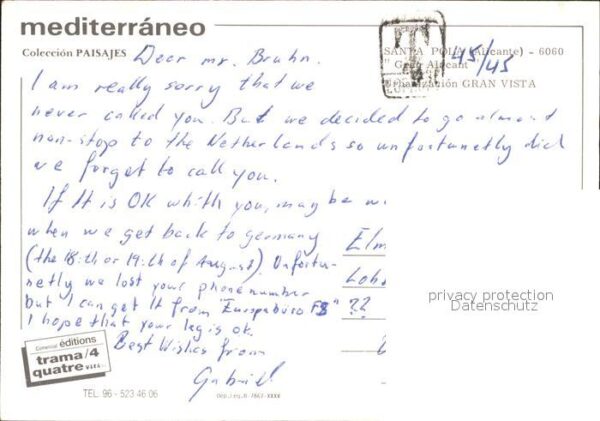 mediterráneo
Colección PAISAJES
SANTA POLA (Alicante) - 6060
Gran Alacant
Urbanización GRAN VISTA
T
45/45
Dear mr. Bruhn.
I am really sorry that we
never called you. But we decided to go almost
non-stop to the Netherlands so unfortunetly did
we forget to call you.
If It is OK whith you, may be w
when we get back to germany
(the 18:th or 19:th of August). Unfortu-
netly we lost your phonenumber
but I can get It from "Europaburo FS"
I hope that your leg is ok.
Best Wishes from
Gabriel
Elm
Lohs
??
privacy protection
Datenschutz
Comercial éditions
trama/4
quatre
TEL. 96 - 523 46 06